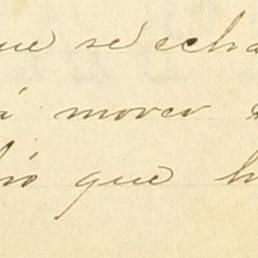 ue se echa
á mover
bió que h